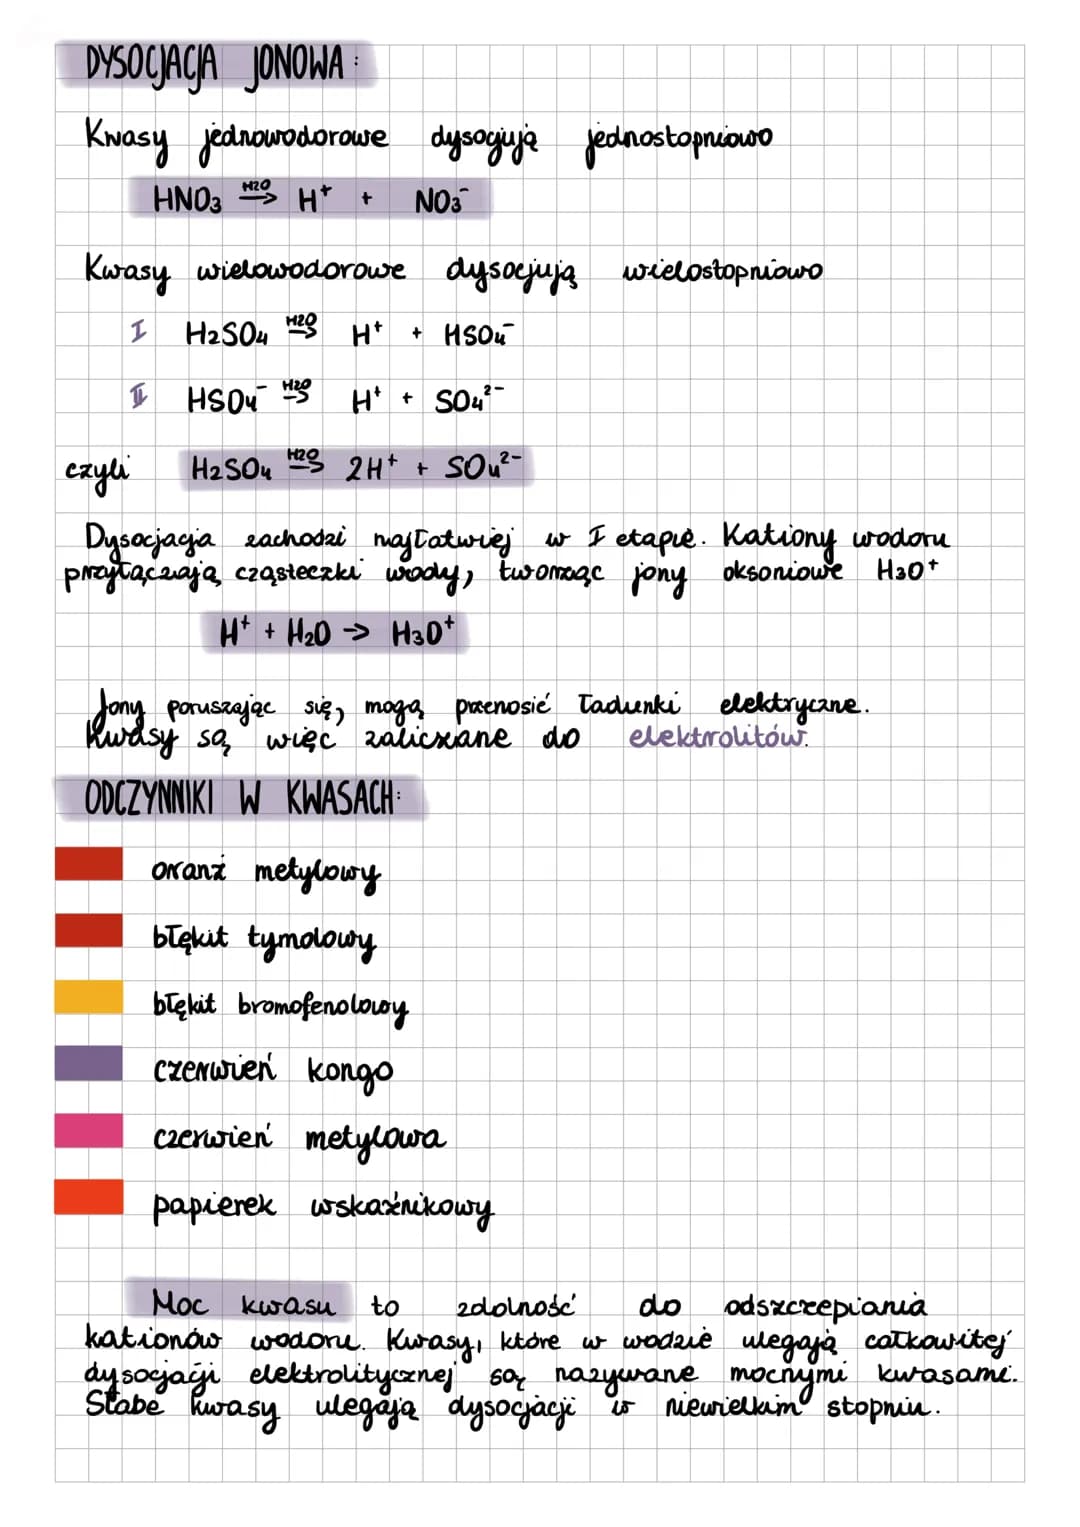 DYSOCJACJA JONOWA:
Kwasy jednowodorowe dysocjują jednostopniowo
HNO₃ H2O→ H⁺ + NO₃⁻
Kwasy wielowodorowe dysocjują wielostopniowo
I H₂SO₄ H2O→ H⁺ + HSO₄⁻
II HSO₄⁻ H2O→ H⁺ + SO₄²⁻
czyli H₂SO₄ H2O→ 2H⁺ + SO₄²⁻
Dysocjacja zachodzi najłatwiej w I etapie. Kationy wodoru
przyłączają cząsteczki wody, tworząc jony oksoniowe H₃O⁺
H⁺ + H₂O → H₃O⁺
Jony poruszając się, mogą przenosić ładunki elektryczne.
Kwasy są więc zaliczane do elektrolitów.
ODCZYNNIKI W KWASACH:
oranż metylowy
błękit tymolowy
błękit bromofenolowy
czerwień kongo
czerwień metylowa
papierek wskaźnikowy
Moc kwasu to zdolność do odszczepiania
kationów wodoru. Kwasy, które w wodzie ulegają całkowitej
dysocjacji elektrolitycznej są nazywane mocnymi kwasami.
Słabe kwasy ulegają dysocjacji w niewielkim stopniu.